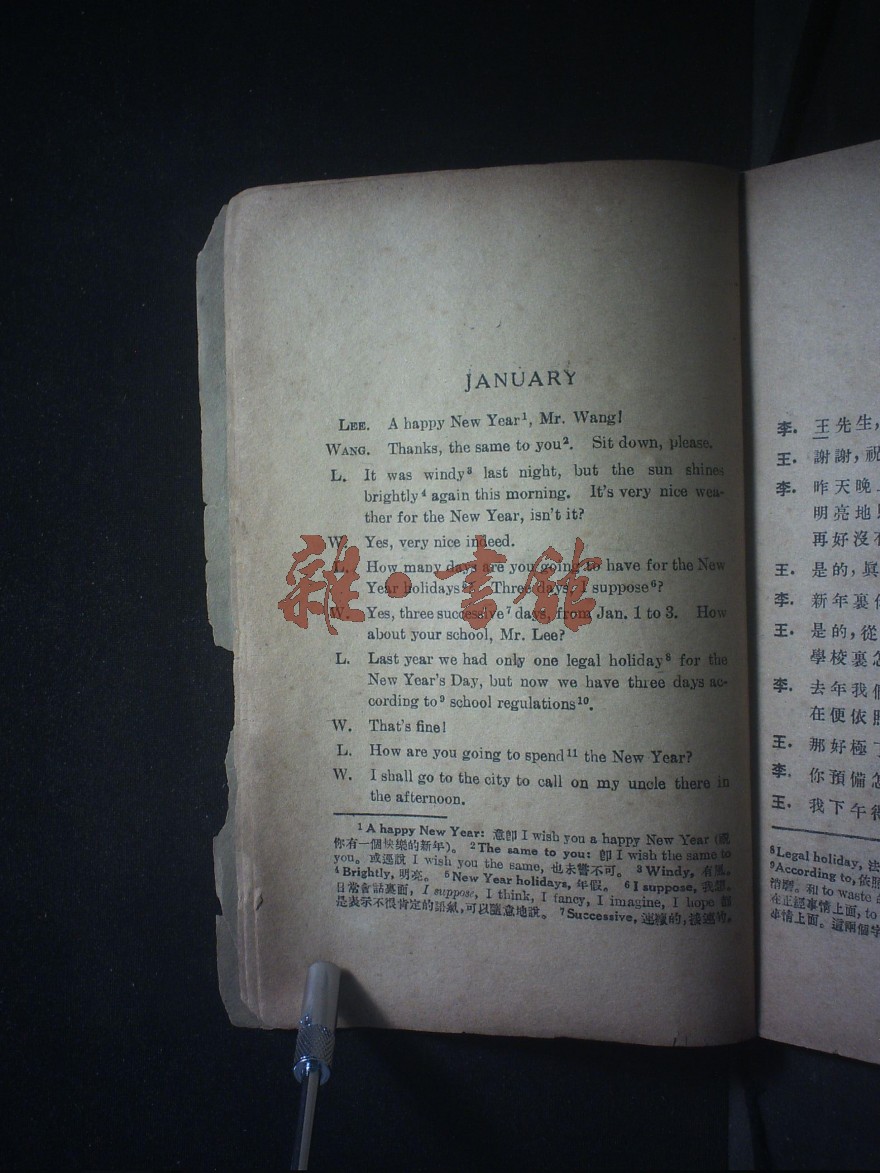 JANUARY
LEE. A happy New Year¹, Mr. Wang!
WANG. Thanks, the same to you². Sit down, please.
L. It was windy³ last night, but the sun shines
brightly⁴ again this morning. It's very nice wea-
ther for the New Year, isn't it?
W. Yes, very nice indeed.
L. How many days are you going to have for the New
Year holidays⁵? Three days, I suppose⁶?
W. Yes, three successive⁷ days, from Jan. 1 to 3. How
about your school, Mr. Lee?
L. Last year we had only one legal holiday⁸ for the
New Year's Day, but now we have three days ac-
cording to⁹ school regulations¹⁰.
W. That's fine!
L. How are you going to spend¹¹ the New Year?
W. I shall go to the city to call on my uncle there in
the afternoon.
¹ A happy New Year: 意卽 I wish you a happy New Year (祝
你有一個快樂的新年)。 ² The same to you: 卽 I wish the same to
you。或逕說 I wish you the same, 也未嘗不可。 ³ Windy, 有風。
⁴ Brightly, 明亮。 ⁵ New Year holidays, 年假。 ⁶ I suppose, 我想。
日常會話裏面, I suppose, I think, I fancy, I imagine, I hope 都
是表示不很肯定的語氣,可以隨意地說。 ⁷ Successive, 連續的,接連的。
李. 王先生,
王. 謝謝,祝
李. 昨天晚上
明亮地
再好沒
王. 是的,眞
李. 新年裏你
王. 是的,從
學校裏怎
李. 去年我們
在便依照
王. 那好極了
李. 你預備怎
王. 我下午得
⁸ Legal holiday, 法
⁹ According to, 依照
消磨。和 to waste
在正經事情上面, to
事情上面。這兩個字
雜·書館